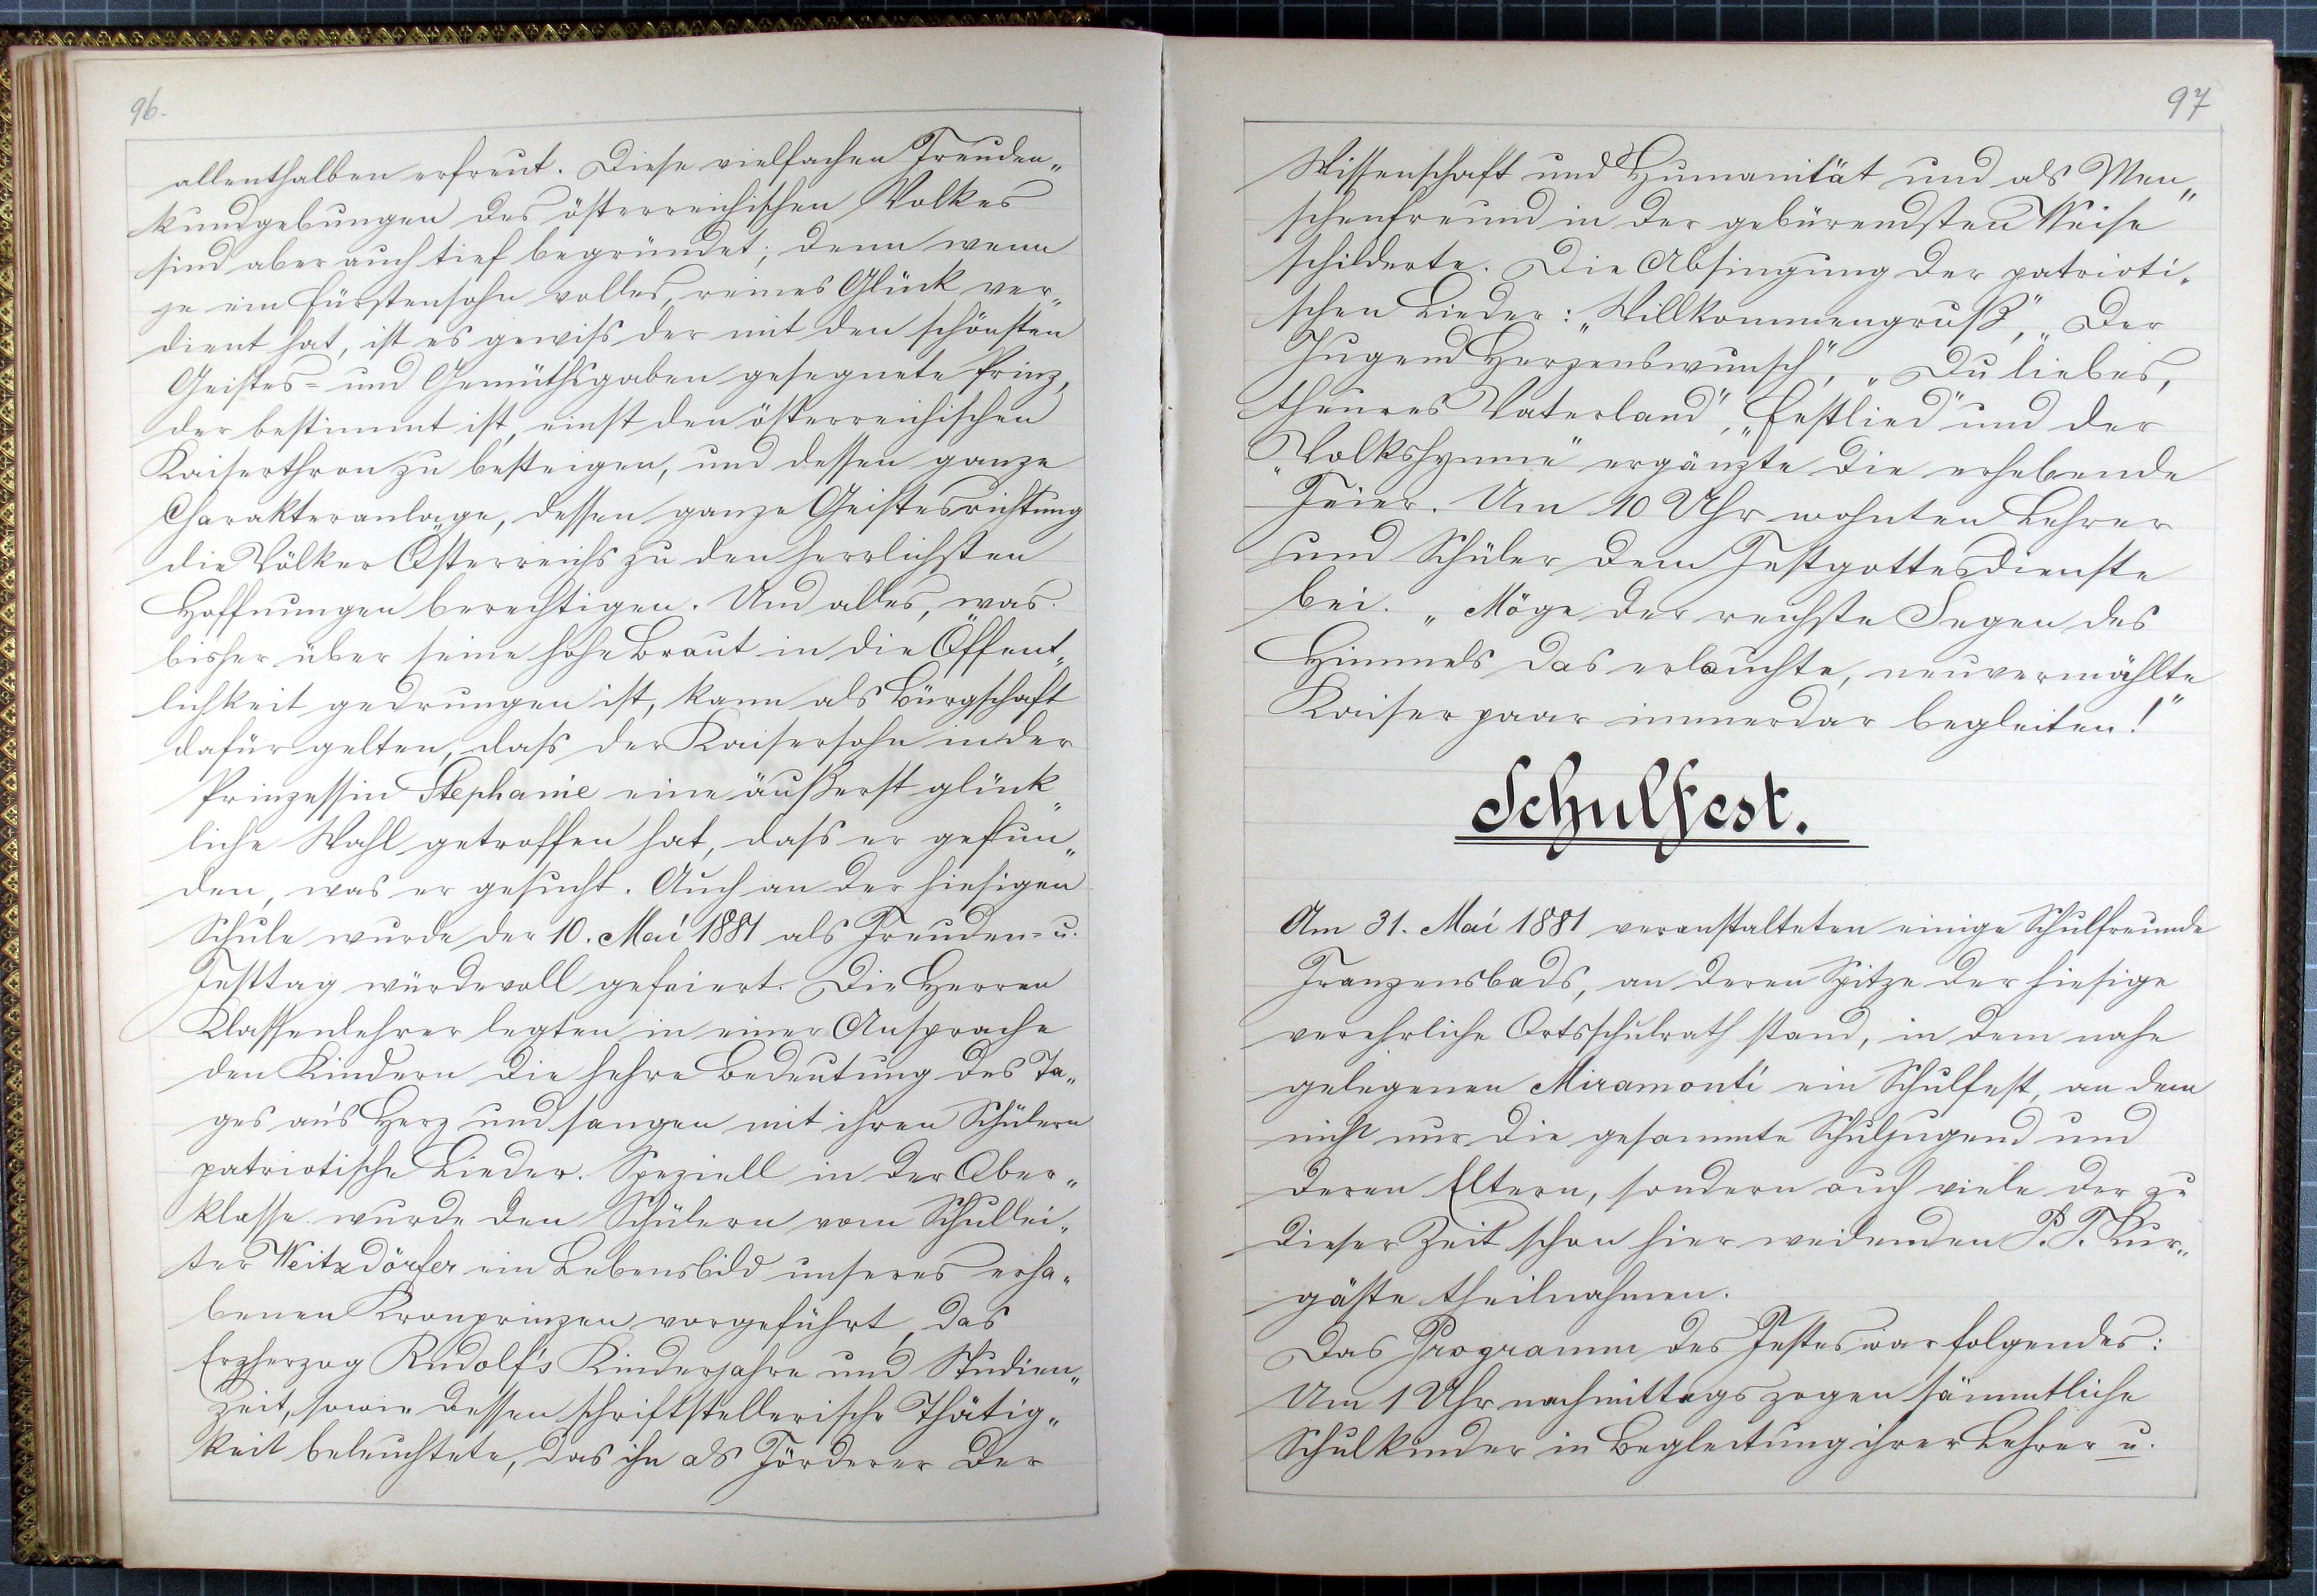 96.
allenthalben erfreut. Diese vielfachen Freuden„
kundgebungen des österreichischen Volkes
sind aber auch tief begründet; denn wenn
je ein Fürstensohn volles, reines Glück ver„
dient hat, ist es gewiß der mit den schönsten
Geistes= und Gemüthsgaben gesegnete Prinz,
der bestimmt ist, einst den österreichischen
Kaiserthron zu besteigen, und dessen ganze
Charakteranlage, dessen ganze Geistesrichtung
die Völker Österreichs zu den herrlichsten
Hoffnungen berechtigen. Und alles, was
bisher über seine hohe Braut in die Öffent„
lichkeit gedrungen ist, kann als Bürgschaft
dafür gelten, daß der Kaisersohn in der
Prinzessin Stephanie eine äußerst glück„
liche Wahl getroffen hat, daß er gefun„
den, was er gesucht. Auch an der hiesigen
Schule wurde der 10. Mai 1881 als Freuden= u.
Festtag würdevoll gefeiert. Die Herren
Klassenlehrer legten in einer Ansprache
den Kindern die hehre Bedeutung des Ta„
ges an's Herz und sangen mit ihren Schülern
patriotische Lieder. Speziell in der Ober„
klasse wurde den Schülern vom Schullei„
ter Weitzdörfer ein Lebensbild unseres erha„
benen Kronprinzen vorgeführt, das
Erzherzog Rudolf's Kinderjahre und Studien„
zeit, sowie dessen schriftstellerische Thätig„
keit beleuchtete, das ihn als Förderer der
97
Wissenschaft und Humanität und als Men„
schenfreund in der gebürendsten Weise
schilderte. Die Absingung der patrioti„
schen Lieder: „Willkommengruß", „Der
Jugend Herzenswunsch", „Du liebes,
theures Vaterland", „Festlied" und der
„Volkshymne" ergänzte die erhebende
Feier. Um 10 Uhr wohnten Lehrer
und Schüler dem Festgottesdienste
bei. „Möge der reichste Segen des
Himmels das erlauchte, neuvermählte
Kaiserpaar immerdar begleiten!"
Schulfest.
Am 31. Mai 1881 veranstalteten einige Schulfreunde
Franzensbads, an deren Spitze der hiesige
verehrliche Ortsschulrath stand, in dem nahe
gelegenen Miramonti ein Schulfest, an dem
nicht nur die gesammte Schuljugend und
deren Eltern, sondern auch viele der zu
dieser Zeit schon hier weilenden P. T. Kur„
gäste theilnahmen.
Das Programm des Festes war folgendes:
Um 1 Uhr nachmittags zogen sämmtliche
Schulkinder in Begleitung ihrer Lehrer u.